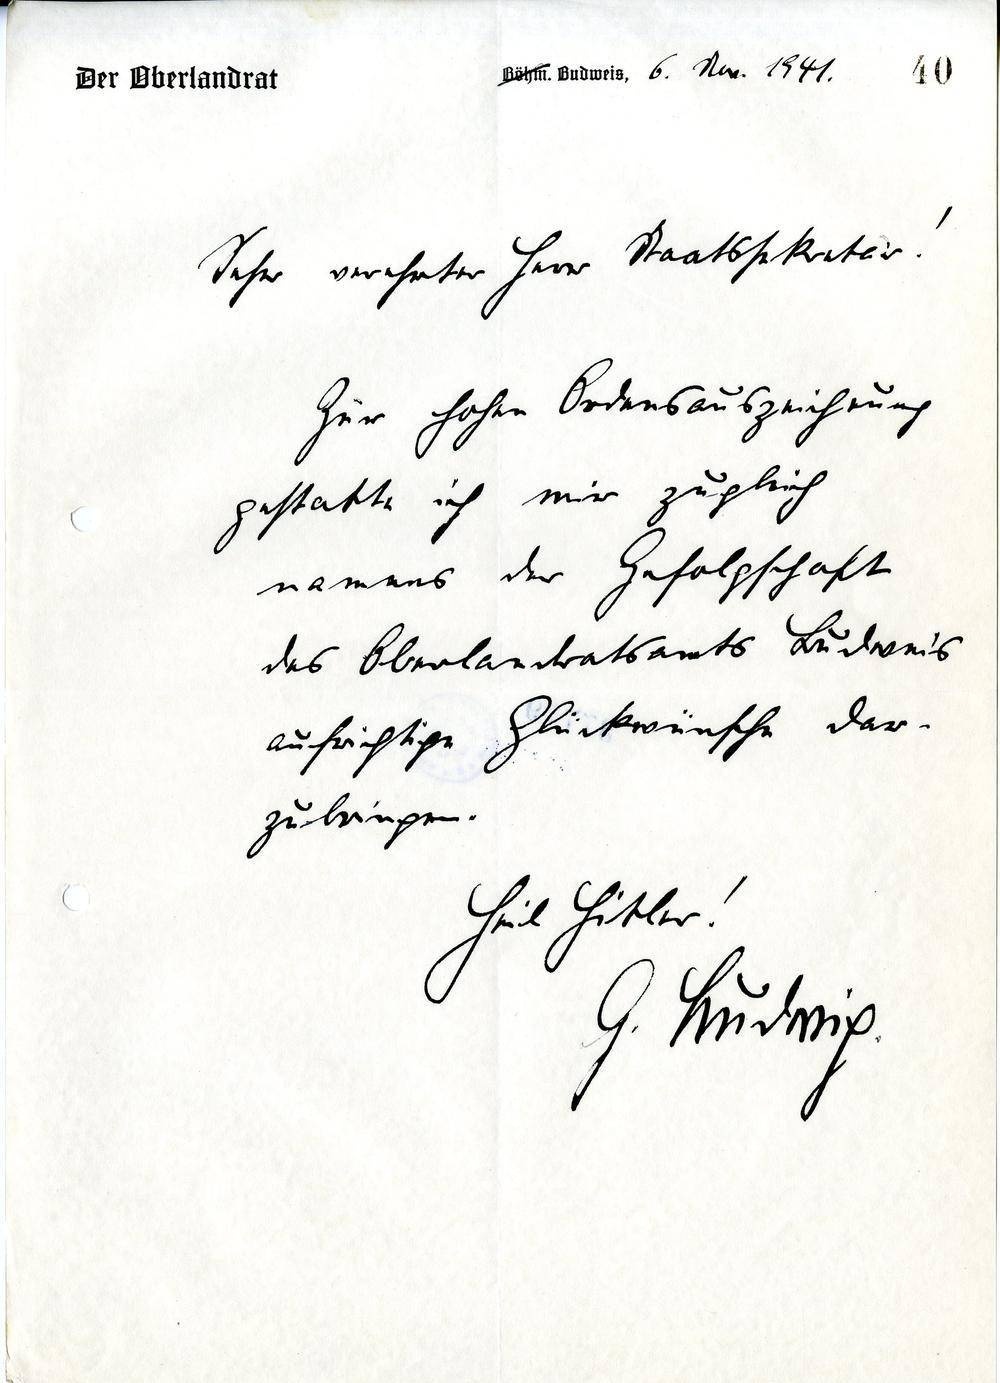 Der Oberlandrat
Böhm. Budweis, 6. Nov. 1941.
40
Sehr verehrter Herr Staatssekretär!
Zur hohen Ordensauszeichnung
gestatte ich mir zugleich
namens der Gefolgschaft
des Oberlandratsamts Budweis
aufrichtige Glückwünsche dar-
zubringen.
Heil Hitler!
G.